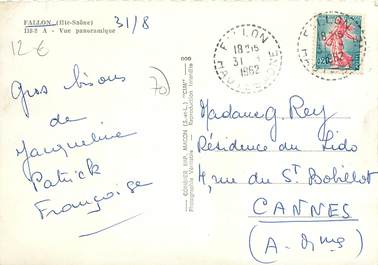 FALLON (Hte-Saône)
112-2 A - Vue panoramique
31/8
12 €
70
Gros bisous
de
Jacqueline
Patrick
Françoise
COMBIER IMP. MACON (S.-&-L.) "CIM"
Photographie Véritable - Reproduction Interdite
FALLON
18H15
31 -
1962
HTE SAONE
0,20
Madame G. Rey
Résidence du Lido
4, rue du St Bohillot
CANNES
(A-Mmes)